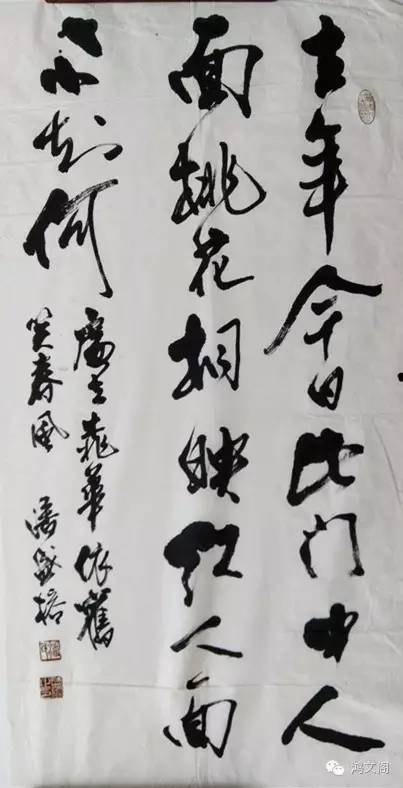 去年今日此门中人
面桃花相映红人面
不知何
處去桃華依舊
笑春風 潘
鸿文阁